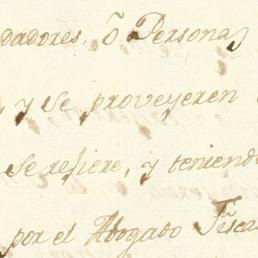 dadores, ò Personas
y se proveyeren
se refiere, y teniendo
por el Abogado Fisca